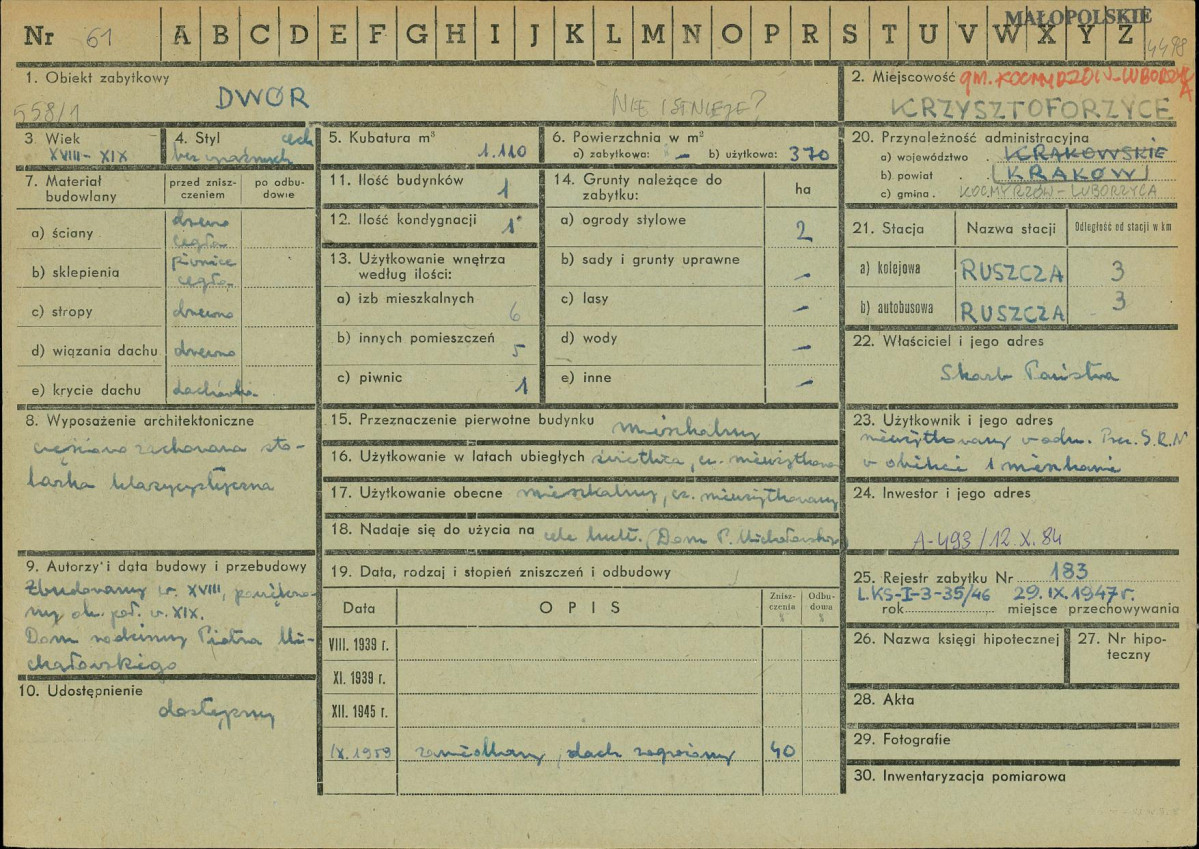 MAŁOPOLSKIE
Nr 61 A B C D E F G H I J K L M N O P R S T U V W X Y Z
4498
1. Obiekt zabytkowy
558/1
DWÓR
NIE ISTNIEJE?
2. Miejscowość gm. KOCMYRZÓW-LUBORZYCA
KRZYSZTOFORZYCE
3. Wiek
XVIII-XIX
4. Styl cech
bez wyraźnych
5. Kubatura m³
1.110
6. Powierzchnia w m²
a) zabytkowa: – b) użytkowa: 370
7. Materiał budowlany
przed zniszczeniem
po odbudowie
a) ściany drewno cegła
b) sklepienia piwnice cegła
c) stropy drewno
d) wiązania dachu drewno
e) krycie dachu dachówka
8. Wyposażenie architektoniczne
częściowo zachowana sto-
larka klasycystyczna
9. Autorzy i data budowy i przebudowy
Zbudowany w. XVIII, powiększo-
ny ok. poł. w. XIX.
Dom rodzinny Piotra Mi-
chałowskiego
10. Udostępnienie
dostępny
11. Ilość budynków
1
12. Ilość kondygnacji
1
13. Użytkowanie wnętrza
według ilości:
a) izb mieszkalnych
6
b) innych pomieszczeń
5
c) piwnic
1
14. Grunty należące do
zabytku:
ha
a) ogrody stylowe 2
b) sady i grunty uprawne –
c) lasy –
d) wody –
e) inne –
15. Przeznaczenie pierwotne budynku mieszkalny
16. Użytkowanie w latach ubiegłych świetlica, cz. nieużytkowa
17. Użytkowanie obecne mieszkalny, cz. nieużytkowany
18. Nadaje się do użycia na cele kult. (Dom P. Michałowskiego)
19. Data, rodzaj i stopień zniszczeń i odbudowy
Data OPIS Zniszczenia % Odbudowa %
VIII. 1939 r.
XI. 1939 r.
XII. 1945 r.
IX. 1959 zaniedbany, dach zagrożony 40
20. Przynależność administracyjna
a) województwo KRAKOWSKIE
b) powiat KRAKÓW
c) gmina KOCMYRZÓW-LUBORZYCA
21. Stacja Nazwa stacji Odległość od stacji w km
a) kolejowa RUSZCZA 3
b) autobusowa RUSZCZA 3
22. Właściciel i jego adres
Skarb Państwa
23. Użytkownik i jego adres
nieużytkowany w adm. Prez. G.R.N
w obiekcie 1 mieszkanie
24. Inwestor i jego adres
A-493/12.X.84
25. Rejestr zabytku Nr 183
LKS-I-3-35/46 29.IX.1947 r.
rok miejsce przechowywania
26. Nazwa księgi hipotecznej
27. Nr hipoteczny
28. Akta
29. Fotografie
30. Inwentaryzacja pomiarowa